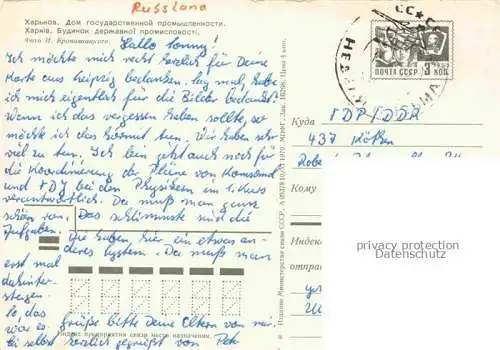 Russland
Харьков. Дом государственной промышленности.
Харків. Будинок державної промисловості.
Фото И. Кропивницкого.
Hallo Conny!
Ich möchte mich recht herzlich für Deine
Karte aus Leipzig bedanken. Sag mal, habe
ich mich eigentlich für die Bilder bedankt?
Wenn ich das vergessen haben sollte, so
möchte ich das hiermit tun. Wir haben sehr
viel zu tun. Ich bin jetzt auch noch für
die Koordinierung der Pläne von Komsomol
und FDJ bei den Physikern im 1. Kurs
verantwortlich. Da muß man ganz
schön ran. Das schlimmste sind die
Aufgaben. Die haben hier ein etwas an-
deres System. Da muß man
erst mal
dahinter-
steigen.
So das
war es. Grüße bitte Deine Eltern von mir.
Sei selbst herzlich gegrüßt von
Индекс предприятия связи места назначения
Издание Министерства связи СССР.
ПОЧТА СССР
3
КОП
СССР
Куда
TDP/DDR
437 Köthen
Кому
Индекс
отправ
ул
privacy protection
Datenschutz